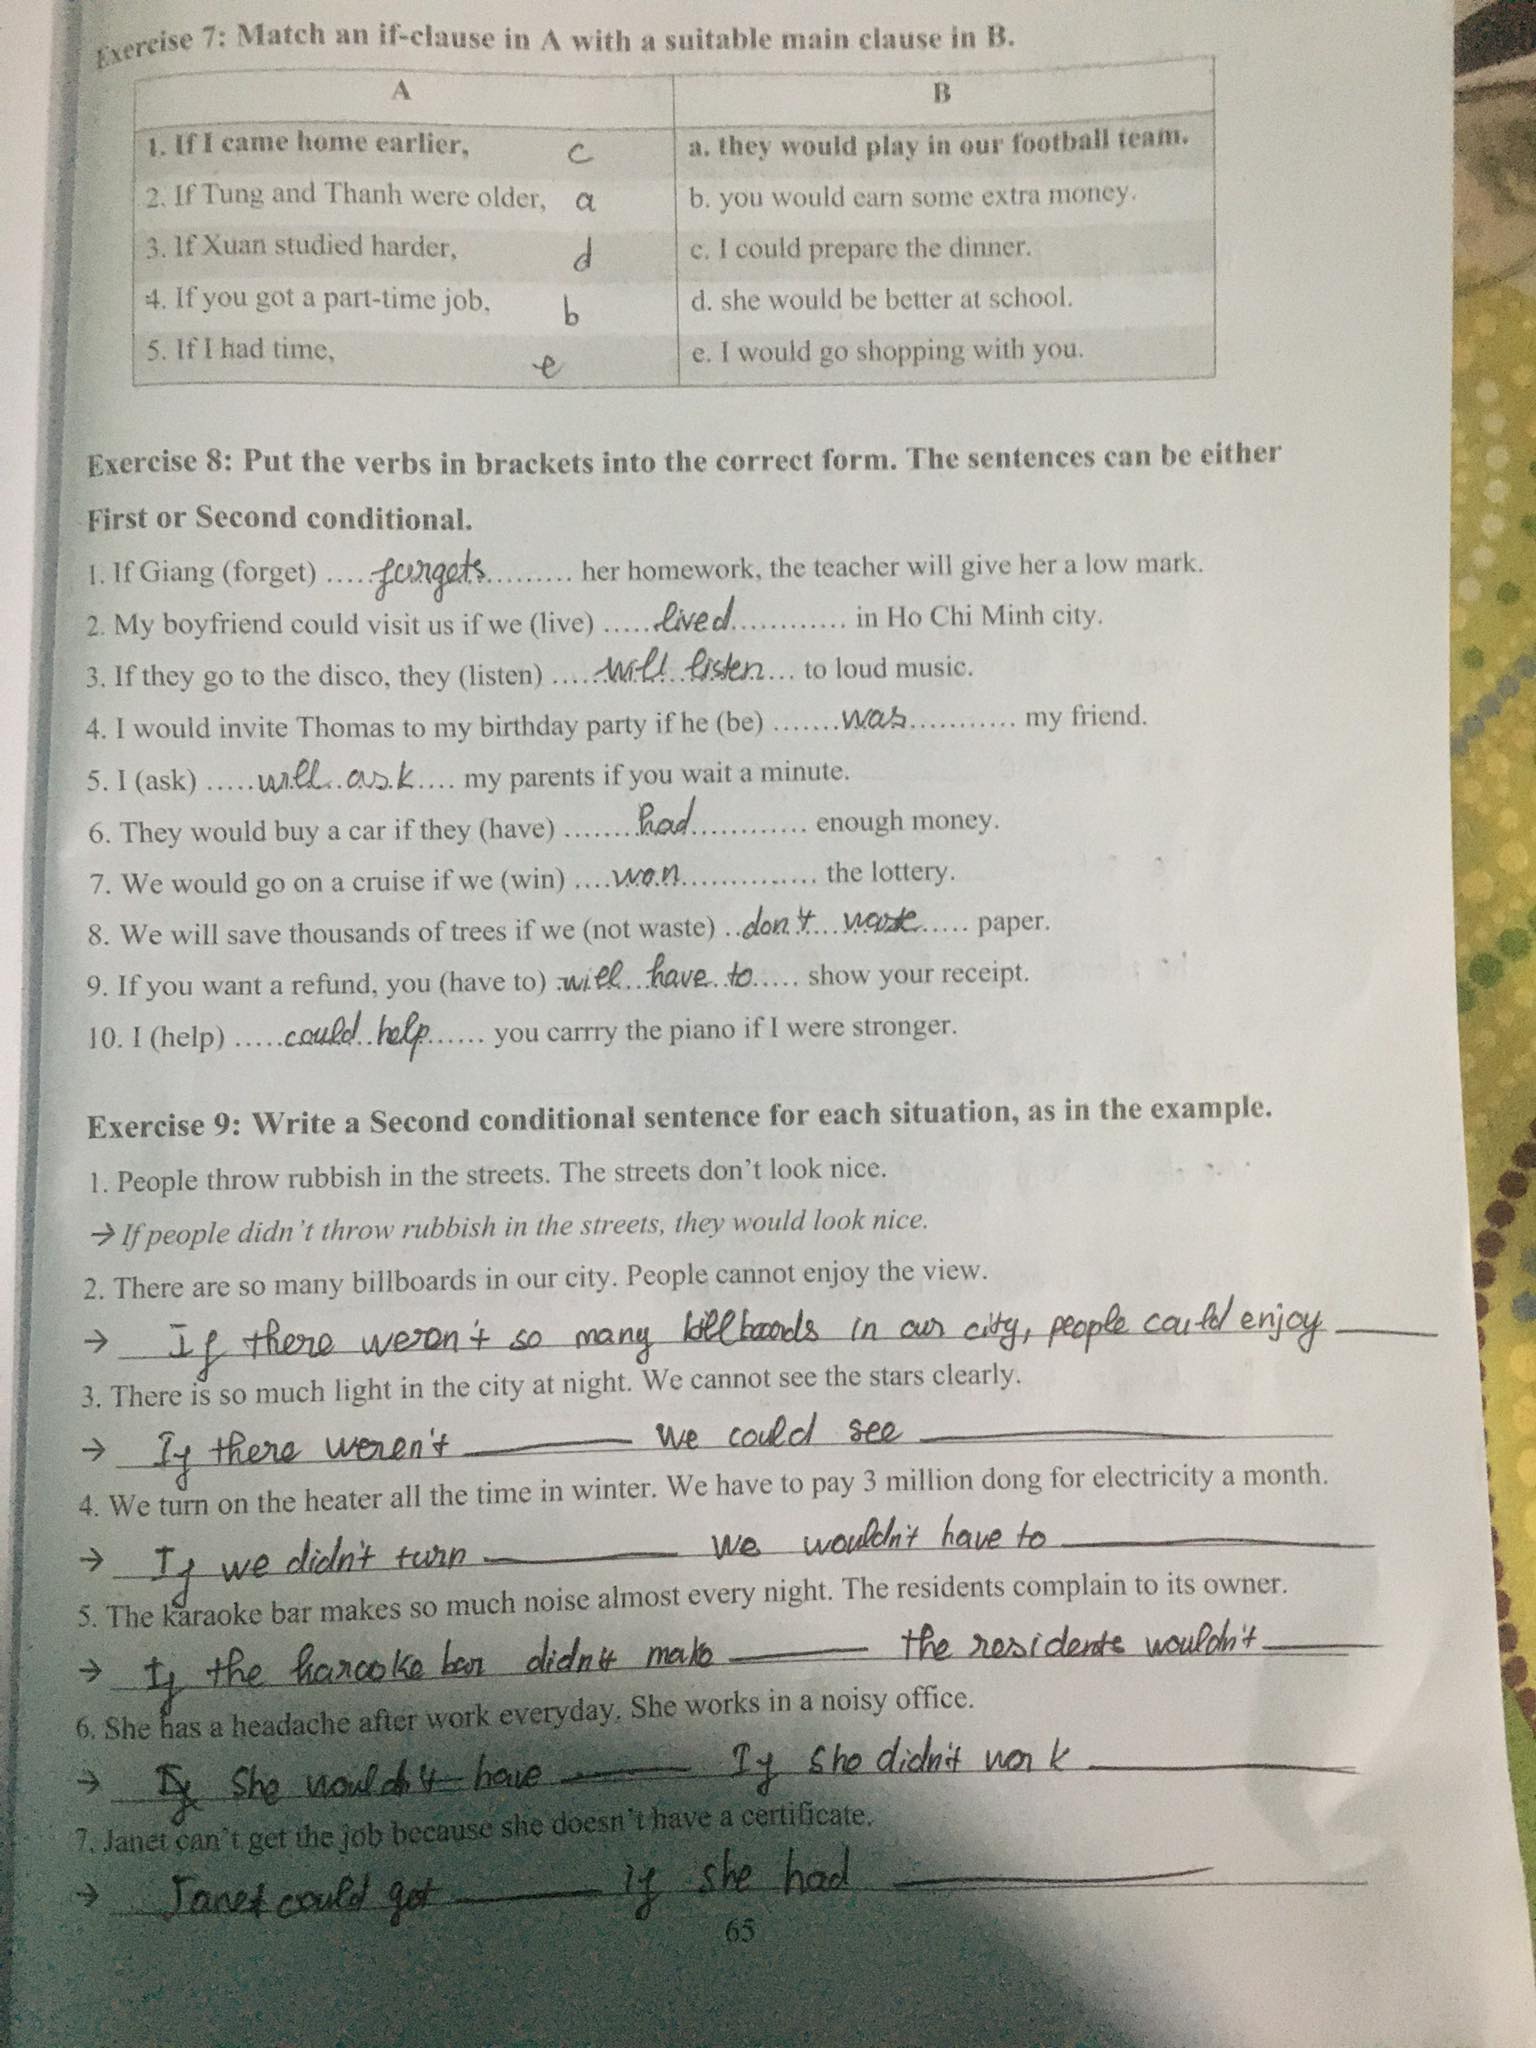 Exercise 7: Match an if-clause in A with a suitable main clause in B.
A B
1. If I came home earlier, c a. they would play in our football team.
2. If Tung and Thanh were older, a b. you would earn some extra money.
3. If Xuan studied harder, d c. I could prepare the dinner.
4. If you got a part-time job, b d. she would be better at school.
5. If I had time, e e. I would go shopping with you.
Exercise 8: Put the verbs in brackets into the correct form. The sentences can be either
First or Second conditional.
1. If Giang (forget) .....forgets......... her homework, the teacher will give her a low mark.
2. My boyfriend could visit us if we (live) .....lived............ in Ho Chi Minh city.
3. If they go to the disco, they (listen) .....will listen... to loud music.
4. I would invite Thomas to my birthday party if he (be) .......was........... my friend.
5. I (ask) .....will ask.... my parents if you wait a minute.
6. They would buy a car if they (have) .......had............ enough money.
7. We would go on a cruise if we (win) ....won.............. the lottery.
8. We will save thousands of trees if we (not waste) ..don't waste..... paper.
9. If you want a refund, you (have to) .will have to..... show your receipt.
10. I (help) .....could help...... you carrry the piano if I were stronger.
Exercise 9: Write a Second conditional sentence for each situation, as in the example.
1. People throw rubbish in the streets. The streets don't look nice.
→ If people didn't throw rubbish in the streets, they would look nice.
2. There are so many billboards in our city. People cannot enjoy the view.
→ If there weren't so many billboards in our city, people could enjoy
3. There is so much light in the city at night. We cannot see the stars clearly.
→ If there weren't we could see
4. We turn on the heater all the time in winter. We have to pay 3 million dong for electricity a month.
→ If we didn't turn we wouldn't have to
5. The karaoke bar makes so much noise almost every night. The residents complain to its owner.
→ If the karaoke bar didn't make the residents wouldn't
6. She has a headache after work everyday. She works in a noisy office.
→ She wouldn't have If she didn't work
7. Janet can't get the job because she doesn't have a certificate.
→ Janet could get if she had
65